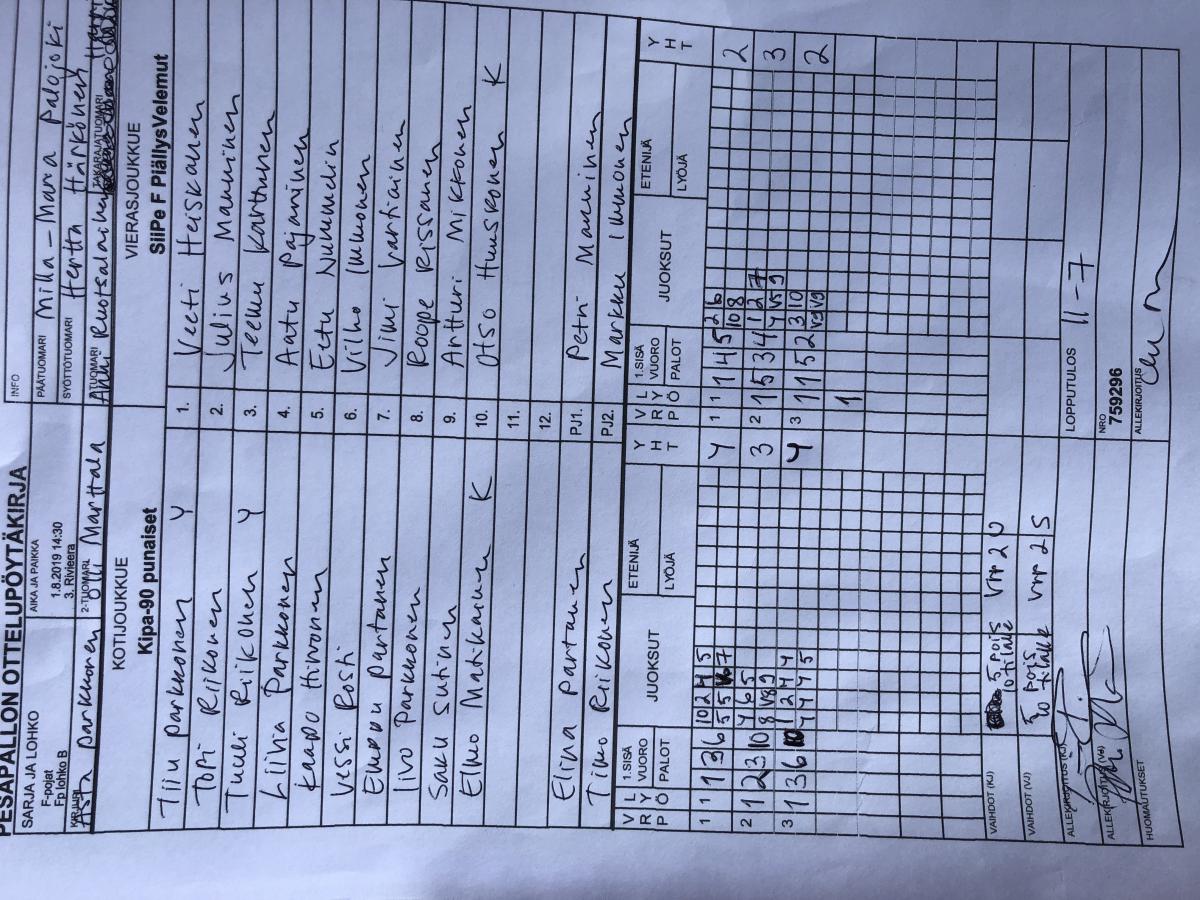 PESÄPALLON OTTELUPÖYTÄKIRJA
SARJA JA LOHKO
F-pojat
Fp lohko B
AIKA JA PAIKKA
1.8.2019 14:30
3. Riviera
INFO
PÄÄTUOMARI Milla-Mana Palojoki
SYÖTTÖTUOMARI Hertta Härkönen
KIRJURI Asta Parkkonen
2-TUOMARI Olli Marttala
TAKARAJATUOMARI
KOTIJOUKKUE
Kipa-90 punaiset
VIERASJOUKKUE
SiiPe F PiällysVelemut
Tiiu Parkkonen Y 1. Veeti Heiskanen
Topi Riikonen 2. Julius Manninen
Tuuli Riikonen Y 3. Teemu Karttunen
Liina Parkkonen 4. Aatu Pajarinen
Kaapo Hirvonen 5. Eetu Nummelin
Vessi Rosti 6. Vilho Immonen
Emppu Partanen 7. Jimi Vartiainen
Iivo Parkkonen 8. Roope Rissanen
Saku Sutinen 9. Artturi Mikkonen
Elmo Matikainen K 10. Otso Huuskonen K
11.
12.
Elina Partanen PJ1. Petri Manninen
Timo Riikonen PJ2. Markku Immonen
V R P L Y Ö 1.SISÄ VUORO PALOT JUOKSUT ETENIJÄ LYÖJÄ Y H T V R P L Y Ö 1.SISÄ VUORO PALOT JUOKSUT ETENIJÄ LYÖJÄ Y H T
1 1 1 3 6 10 2 4 5 4 1 1 1 4 5 2 6 2
5 5 7 10 8
2 1 2 3 10 4 6 5 3 2 1 5 3 4 1 2 7 3
8 V8 9 4 V5 9
3 1 3 6 1 2 4 4 4 3 1 1 5 2 3 10 2
4 4 4 5 1
VAIHDOT (KJ) 5 pois 10 tilalle Vrp 2 U
VAIHDOT (VJ) 5 pois 10 tilalle Vrp 2 S
ALLEKIRJOITUS (KJ)
LOPPUTULOS 11-7
ALLEKIRJOITUS (VJ)
NRO
759296
HUOMAUTUKSET
ALLEKIRJOITUS